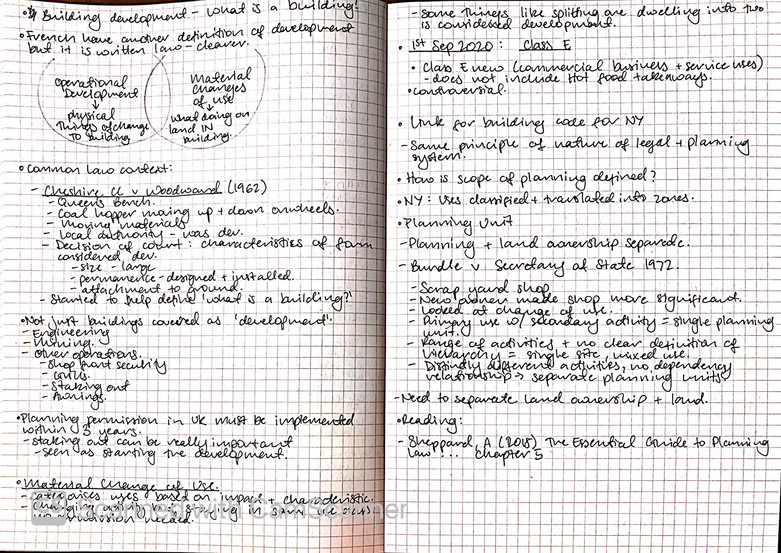 Building development - what is a building?
• French have another definition of development
but it is written law - cleaver.
Operational
Development
↓
physical
Things of change
TO building
Material
changes
of use
↓
what doing on
land IN
building.
• Common Law context:
- Cheshire CC v Woodward (1962)
- Queens Bench.
- Coal hopper moving up + down on wheels.
- Moving materials
- Local authority - was dev.
- Decision of court: characteristics of form
considered dev.
- size - large
- permanence - designed + installed.
- attachment to ground.
- Started to help define 'what is a building?'
• Not just buildings covered as 'development'.
- Engineering
- Mining.
- Other operations.
- Shop front security
- Grills.
- Staking out
- Awnings.
• Planning permission in UK must be implemented
within 3 years.
- staking out can be really important
- seen as starting the development.
• Material Change of Use.
- categorises uses based on impact + characteristic.
- changing activity but staying in same use class
no permission needed.
Scanned with CamScanner
- Some things like splitting are dwelling into two
is considered development.
• 1st Sep 2020: Class E
• Class E new (commercial business + service uses)
- does not include Hot food takeaways.
• controversial.
• Link for building code for NY
- Same principle of nature of legal + planning
system.
• How is scope of planning defined?
• NY: Uses classified + translated into zones.
• Planning Unit
- Planning + land ownership separate.
- Bundle v Secretary of State 1972.
- Scrap yard shop
- New owner made shop more significant.
- Looked at change of use.
- Primary use w/ secondary activity = single planning
unit.
- Range of activities + no clear definition of
hierarchy = single site, mixed use.
- Distinctly different activities, no dependency
relationship → separate planning units
- Need to separate land ownership + land.
• Reading:
- Sheppard, A (2015) The Essential Guide to Planning
Law ... chapter 5